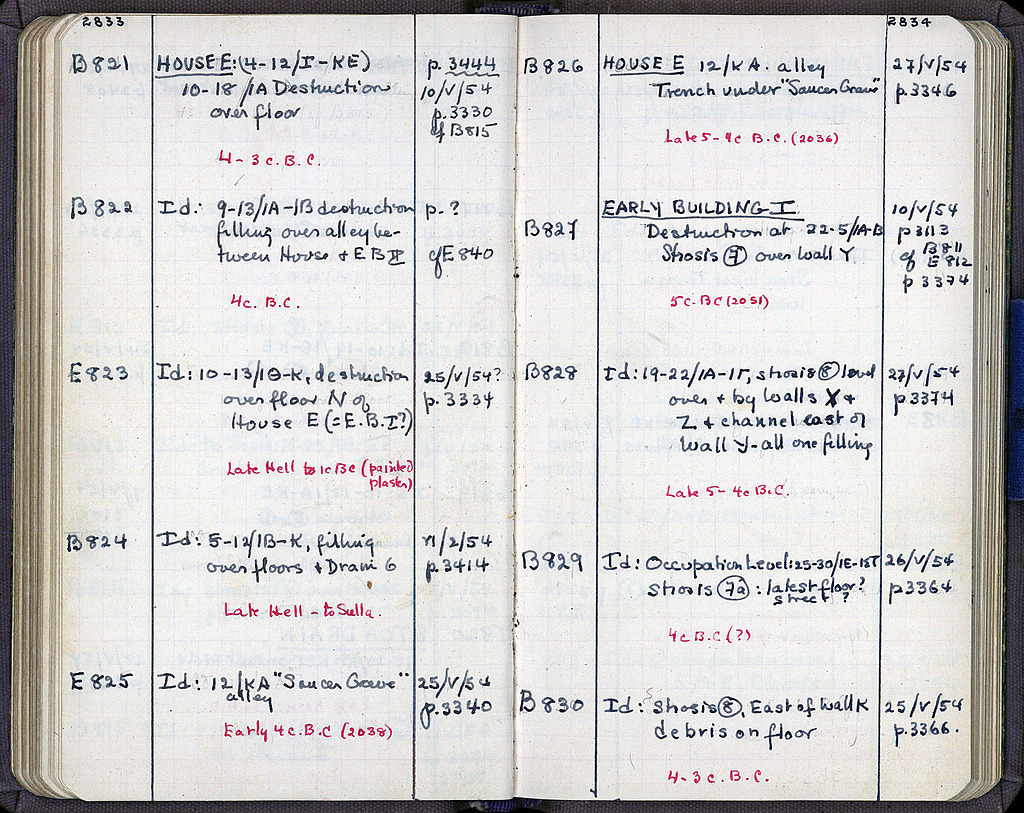 2833
B821 HOUSE E: (4-12/I-KE) p. 3444
10-18/IA Destruction 10/V/54
over floor p.3330
cf B815
4-3 c. B.C.
B822 Id: 9-13/IA-IB destruction p. ?
filling over alley be-
tween House + E B II cf E840
4c. B.C.
E823 Id: 10-13/IΘ-K, destruction 25/V/54?
over floor N of p. 3334
House E (=E.B.I?)
Late Hell to 1c BC (painted
plaster)
B824 Id: 5-12/IB-K, filling /2/54
over floors + Drain 6 p.3414
Late Hell - to Sulla.
E825 Id: 12/KA "Saucer Grave" 25/V/54
alley p.3340
Early 4c. B.C (2038)
2834
B826 HOUSE E 12/KA. alley 27/V/54
Trench under "Saucer Grave" p.3346
Late 5-4c B.C. (2036)
EARLY BUILDING I 10/V/54
B827 Destruction at 22-5/IA-B p3113
Strosis 7 over Wall Y cf B811
E812
p 3374
5c. BC (2051)
B828 Id: 19-22/IA-IΓ, strosis 8 level 27/V/54
over + by Walls X + p3374
Z, + channel east of
Wall Y-all one filling
Late 5-4c B.C.
B829 Id: Occupation Level: 25-30/IE-IST 26/V/54
Strosis 7a : latest floor? p3364
street ?
4c B.C (?)
B830 Id: Strosis 8, East of Wall K 25/V/54
debris on floor p.3366.
4-3 c. B.C.